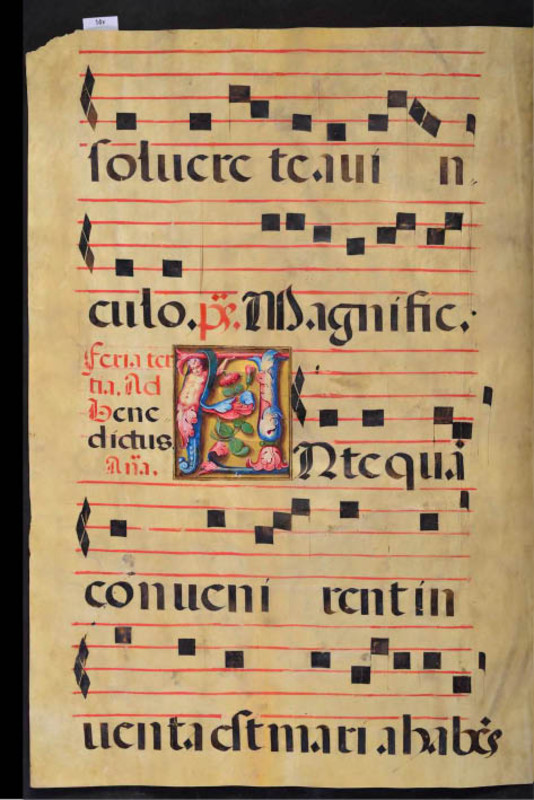 soluere te aui n
culo. ps. Magnific.
feria ter
tia. Ad
Bene
dictus
Aña.
ANtequā
conueni rentin
uenta est mari a habēs